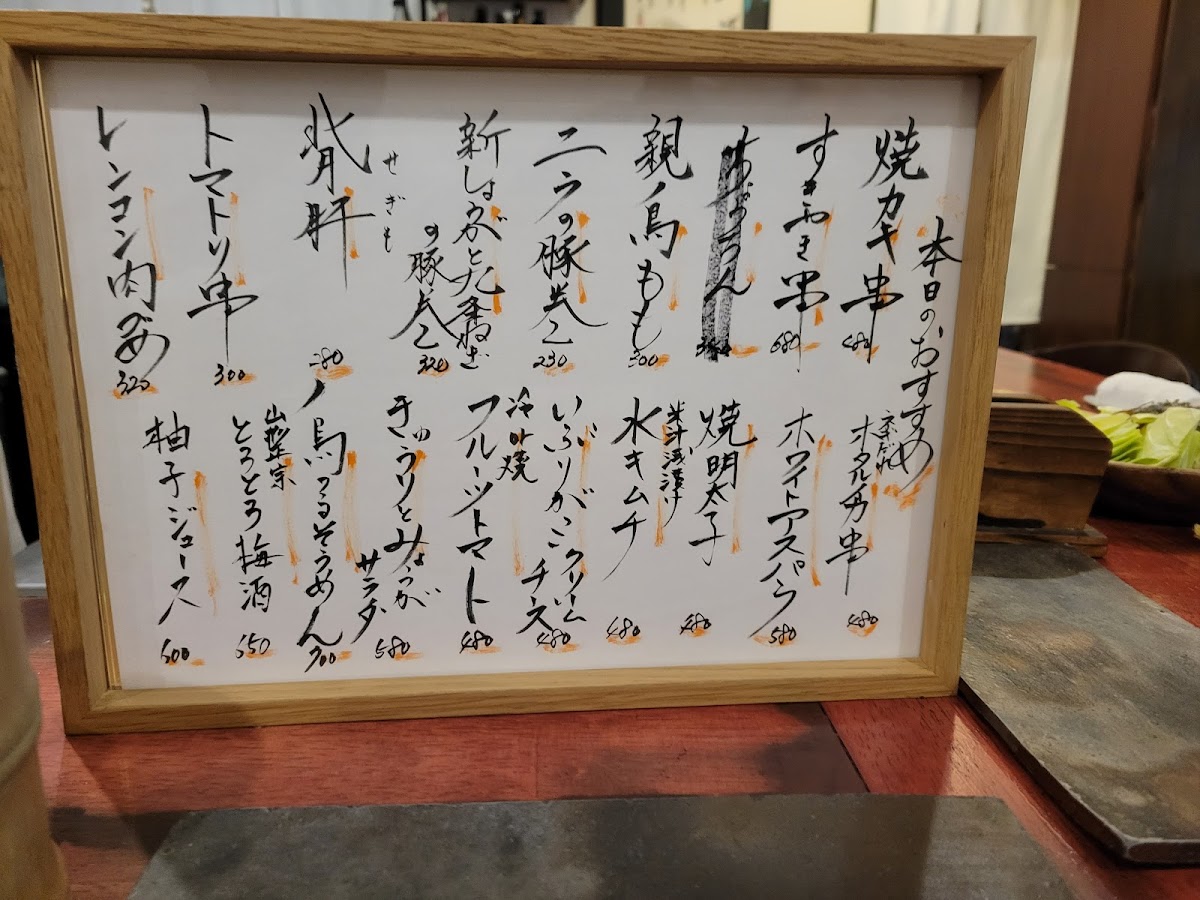 本日のおすすめ
焼カキ串 480
すきやき串 680
親ノ鳥もも 300
ニラの豚巻 230
新しょうがと九条ねぎの豚巻 320
せぎも
背肝 280
トマトリ串 300
レンコン肉づめ 320
ホタルイカ串 480
ホワイトアスパラ 580
焼明太子 480
浅漬け
水キムチ 480
いぶりがっこクリームチーズ 480
冷や焼
フルーツトマト 480
きゅうりとみょうが
サラダ 580
ノ鳥つるそうめん 700
山形正宗
とろとろ梅酒 650
柚子ジュース 600